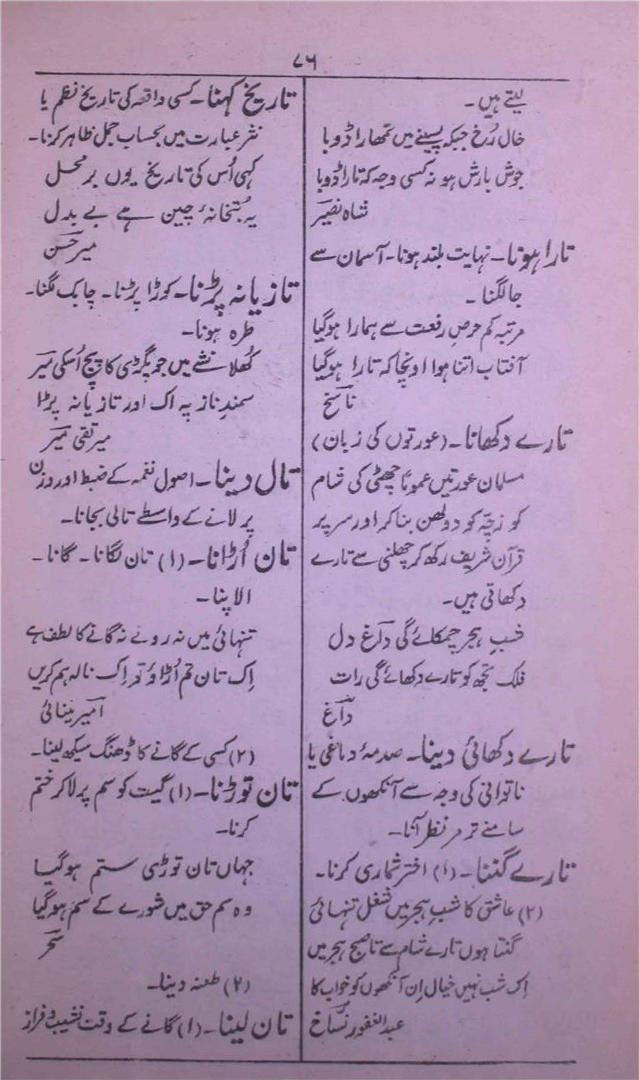 ۷۶
لیتے ہیں۔
خال رُخ جبکہ پسینے میں تمھارا ڈوبا
جوش بارش ہو نہ کسی وجہ کہ تارا ڈوبا
شاہ نصیرؔ
تارا ہونا۔ نہایت بلند ہونا۔ آسمان سے
جا لگنا۔
مرتبہ کم حرصِ رفعت سے ہمارا ہوگیا
آفتاب اتنا ہوا اونچا کہ تارا ہوگیا
ناسخؔ
تارے دکھانا۔ (عورتوں کی زبان)
مسلمان عورتیں عموماً چھٹی کی شام
کو زچہ کو دولھن بنا کر اور سر پر
قرآن شریف رکھ کر چھلنی سے تارے
دکھاتی ہیں۔
شبِ ہجر چمکائے گی داغ دل
فلک تجھ کو تارے دکھائے گی رات
داغؔ
تارے دکھائی دینا۔ صدمۂ دماغی یا
ناتوانی کی وجہ سے آنکھوں کے
سامنے ترمر نظر آنا۔
تارے گننا۔ (۱) اختر شماری کرنا۔
(۲) عاشق کا شبِ ہجر میں شغل تنہائی
گنتا ہوں تارے شام سے تا صبح ہجر میں
اِک شب نہیں خیال اِن آنکھوں کو خواب کا
عبدالغفور نسّاخؔ
تاریخ کہنا۔ کسی واقعہ کی تاریخ نظم یا
نثر عبارت میں بحساب جمل ظاہر کرنا۔
کہی اُس کی تاریخ یوں برمحل
یہ بُتخانۂ چین ہے بے بدل
میر حسنؔ
تازیانہ پڑنا۔ کوڑا پڑنا۔ چابک لگنا۔
طرہ ہونا۔
کھُلا نشے میں جو پگڑی کا پیچ اُسکی میرؔ
سمندِ ناز پہ اک اور تازیانہ پڑا
میر تقی میرؔ
تال دینا۔ اصول نغمہ کے ضبط اور وزن
پر لانے کے واسطے تالی بجانا۔
تان اُڑانا۔ (۱) تان لگانا۔ گانا۔
الاپنا۔
تنہائی میں نہ رونے نہ گانے کا لطف ہے
اِک تان تم اُڑاؤ تو اِک نالہ ہم کریں
امیرؔ مینائی
(۲) کسی کے گانے کا ڈھنگ سیکھ لینا۔
تان توڑنا۔ (۱) گیت کو سم پر لا کر ختم
کرنا۔
جہاں تان توڑی ستم ہوگیا
وہ سم حق میں شورے کے سم ہوگیا
سحرؔ
(۲) طعنہ دینا۔
تان لینا۔ (۱) گانے کے وقت نشیب و فراز